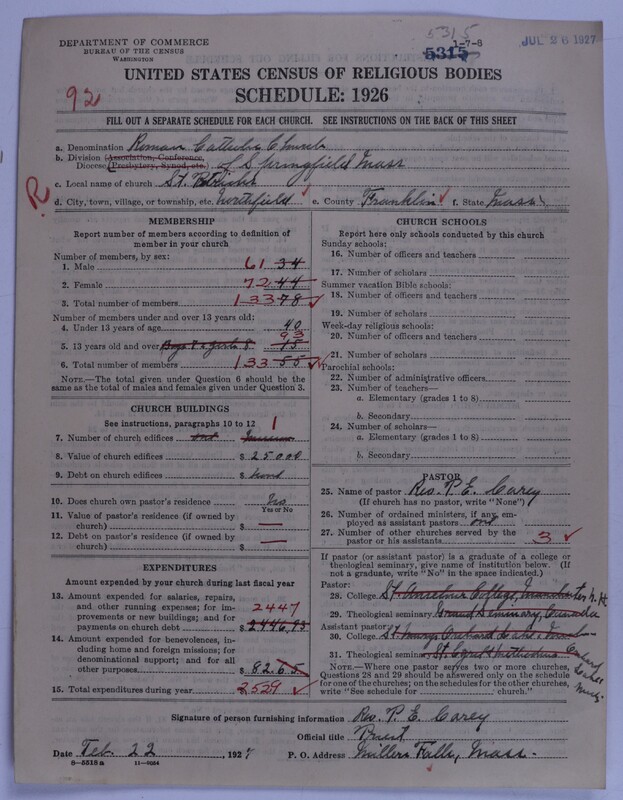 5315
1-7-8
5315
JUL 26 1927
DEPARTMENT OF COMMERCE
BUREAU OF THE CENSUS
WASHINGTON
UNITED STATES CENSUS OF RELIGIOUS BODIES
92
SCHEDULE: 1926
FILL OUT A SEPARATE SCHEDULE FOR EACH CHURCH. SEE INSTRUCTIONS ON THE BACK OF THIS SHEET
a. Denomination Roman Catholic Church
b. Division (Association, Conference,
Diocese (Presbytery, Synod, etc.) of Springfield Mass
c. Local name of church St. Patricks
R
d. City, town, village, or township, etc. Northfield e. County Franklin f. State Mass
MEMBERSHIP
Report number of members according to definition of
member in your church
Number of members, by sex:
1. Male 61 34
2. Female 72 44
3. Total number of members 133 78
Number of members under and over 13 years old:
4. Under 13 years of age 40
93
5. 13 years old and over Boys 8 Girls 8 15
6. Total number of members 133 55
NOTE.—The total given under Question 6 should be the
same as the total of males and females given under Question 3.
CHURCH BUILDINGS
See instructions, paragraphs 10 to 12 1
7. Number of church edifices one
8. Value of church edifices $ 25000
9. Debt on church edifices $
10. Does church own pastor's residence
Yes or No
11. Value of pastor's residence (if owned by
church) $ —
12. Debt on pastor's residence (if owned by
church) $ —
EXPENDITURES
Amount expended by your church during last fiscal year
13. Amount expended for salaries, repairs,
and other running expenses; for im-
provements or new buildings; and for
payments on church debt $ 2447
2446,93
14. Amount expended for benevolences, in-
cluding home and foreign missions; for
denominational support; and for all
other purposes $ 82.65
15. Total expenditures during year 2529
CHURCH SCHOOLS
Report here only schools conducted by this church
Sunday schools:
16. Number of officers and teachers
17. Number of scholars
Summer vacation Bible schools:
18. Number of officers and teachers
19. Number of scholars
Week-day religious schools:
20. Number of officers and teachers
21. Number of scholars
Parochial schools:
22. Number of administrative officers
23. Number of teachers—
a. Elementary (grades 1 to 8)
b. Secondary
24. Number of scholars—
a. Elementary (grades 1 to 8)
b. Secondary
PASTOR
25. Name of pastor Rev. P. E. Carey
(If church has no pastor, write "None")
26. Number of ordained ministers, if any, em-
ployed as assistant pastors one
27. Number of other churches served by the
pastor or his assistants 3
If pastor (or assistant pastor) is a graduate of a college or
theological seminary, give name of institution below. (If
not a graduate, write "No" in the space indicated.)
Pastor:
28. College St. Anselms College, Manchester N.H.
29. Theological seminary Grand Seminary, Canada
Assistant pastor:
30. College St. Marys Orchard Lake
31. Theological seminary
Orchard
Lake
Mich.
NOTE.—Where one pastor serves two or more churches,
Questions 28 and 29 should be answered only on the schedule
for one of the churches; on the schedules for the other churches,
write "See schedule for church."
Signature of person furnishing information Rev. P. E. Carey
Official title Priest
Date Feb. 22, 1927 P. O. Address Millers Falls, Mass.
8—5518 a 11—9024